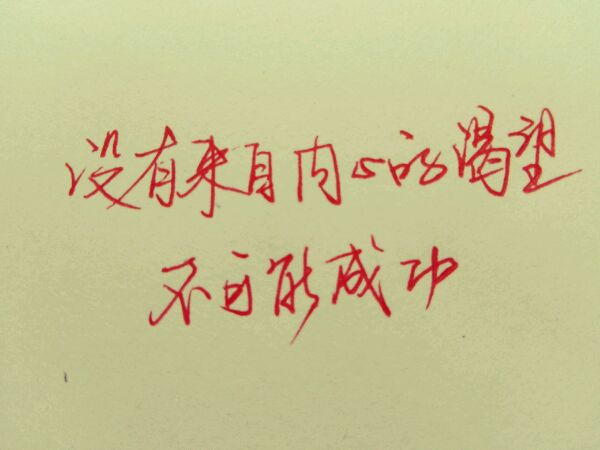 没有来自内心的渴望
不可能成功